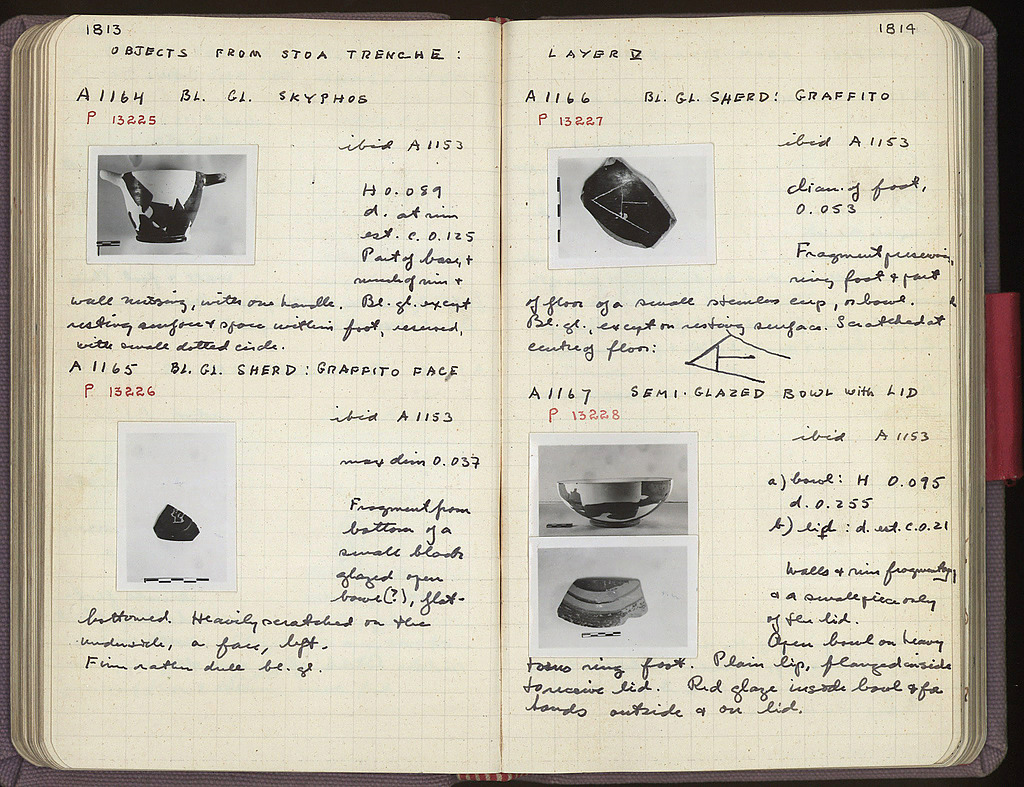 1813
OBJECTS FROM STOA TRENCHE :
A 1164 BL. GL. SKYPHOS
P 13225
ibid A 1153
H 0.089
d. at rim
est. c. 0.125
Part of base, +
much of rim +
wall missing, with one handle. Bl. gl. except
resting surface + space within foot, reserved,
with small dotted circle.
A 1165 BL. GL. SHERD : GRAFFITO FACE
P 13226
ibid A 1153
max dim 0.037
Fragment from
bottom of a
small black
glazed open
bowl (?), flat-
bottomed. Heavily scratched on the
underside, a face, left.
Firm rather dull bl. gl.
1814
LAYER V
A 1166 BL. GL. SHERD : GRAFFITO
P 13227
ibid A 1153
diam. of foot,
0.053
Fragment preserving
ring foot & part
of floor of a small stemless cup, or bowl.
Bl. gl., except on resting surface. Scratched at
centre of floor:
A 1167 SEMI-GLAZED BOWL with LID
P 13228
ibid A 1153
a) bowl : H 0.095
d. 0.255
b) lid : d. est. c. 0.21
Walls & rim fragmentary
& a small piece only
of the lid.
Open bowl on heavy
torus ring foot. Plain lip, flanged inside
to receive lid. Red glaze inside bowl & for
bands outside & on lid.